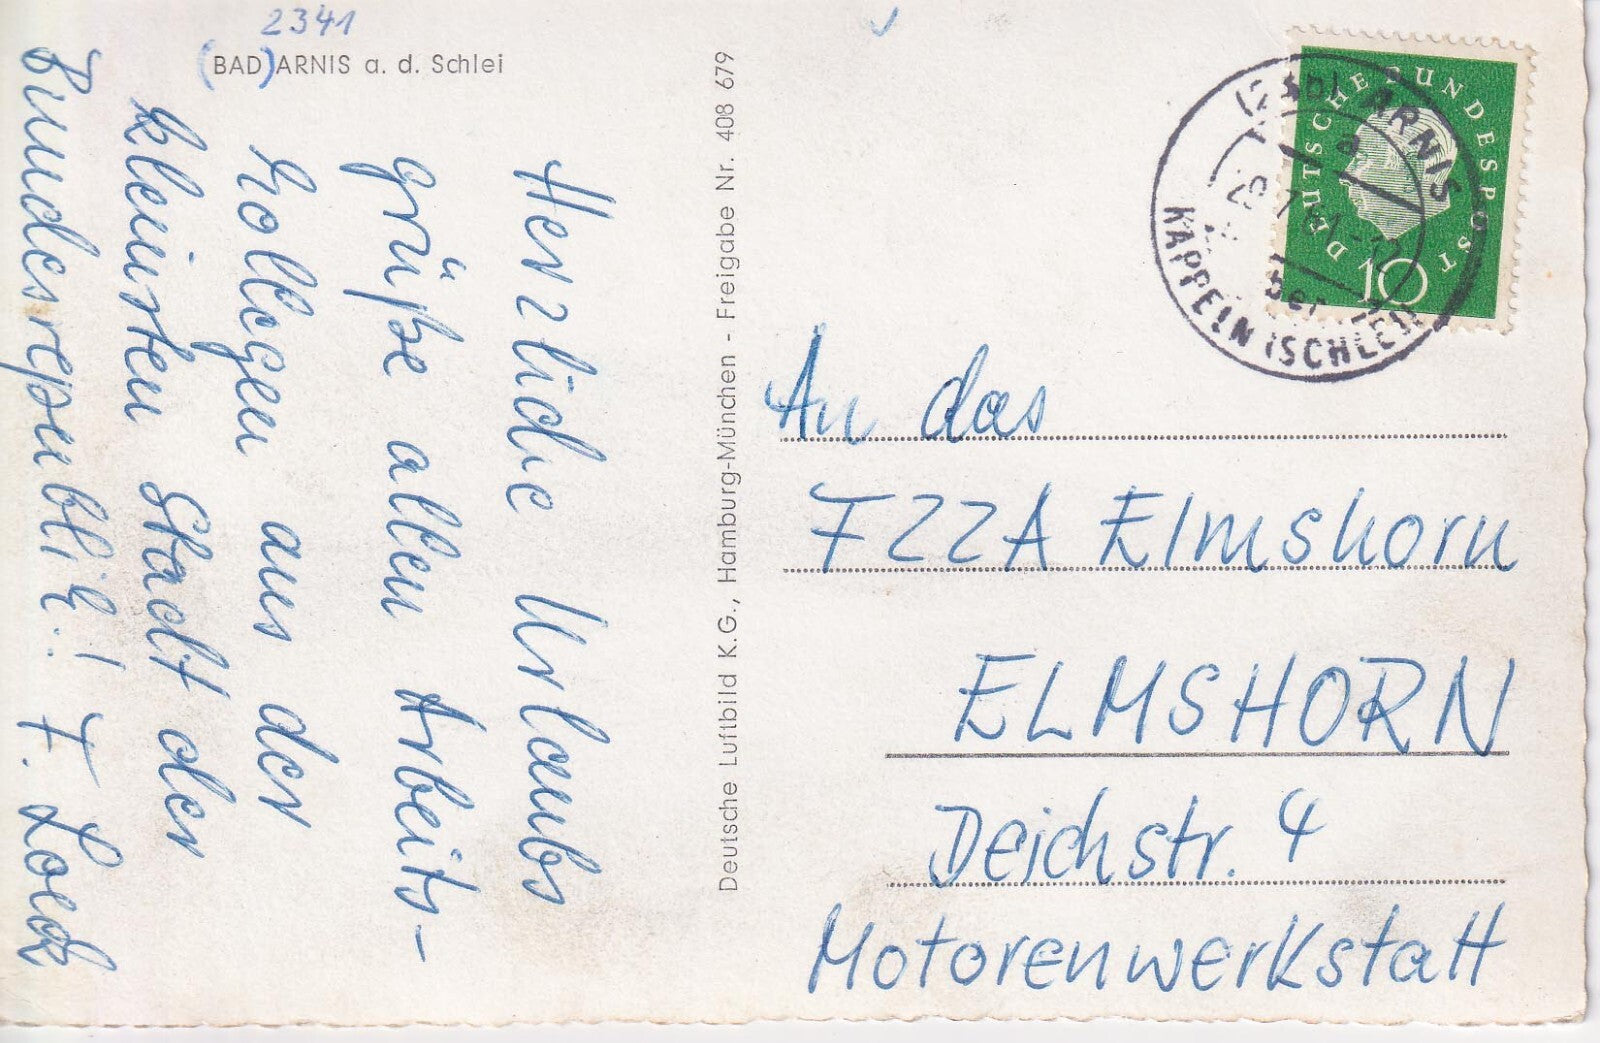 2341
(BAD) ARNIS a. d. Schlei
Herzliche Urlaubs
grüße allen Arbeits-
kollegen aus der
kleinsten Stadt der
Bundesrepublik!! F. Loeck
Deutsche Luftbild K.G., Hamburg-München - Freigabe Nr. 408 679
DEUTSCHE BUNDESPOST
10
ARNIS
a
KAPPELN (SCHLEI)
An das
FZZA Elmshorn
ELMSHORN
Deichstr. 4
Motorenwerkstatt